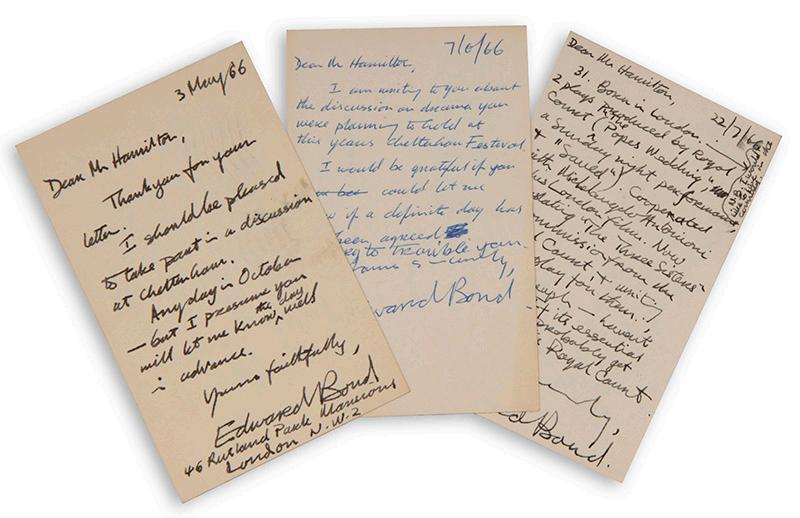 3 May 66
Dear Mr Hamilton,
Thank you for your
letter.
I should be pleased
to take part in a discussion
at Cheltenham.
Any day in October
— but I presume you
will let me know the day well
in advance.
Yours faithfully,
Edward Bond
46 Rutland Park Mansions
London N.W.2
7/6/66
Dear Mr Hamilton,
I am writing to you about
the discussion on drama you
were planning to hold at
this years Cheltenham Festival.
I would be grateful if you
could let me
if a definite day has
been agreed
to trouble you.
Yours sincerely,
Edward Bond
22/7/66
Dear Mr Hamilton,
31. Born in London.
2 plays produced by Royal
Court (The Popes Wedding,
a Sunday night performance,
+ "Saved"). Cooperated
with Michelangelo Antonioni
his London film. Now
"The Three Sisters"
commission from the
Court & writing
play for them.
enough — havent
its essential
probably get
Royal Court.
Bond.